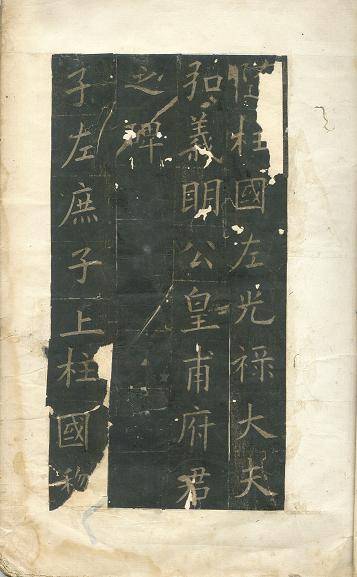 隋柱國左光禄大夫
弘義眀公皇甫府君
之碑
子左庶子上柱國